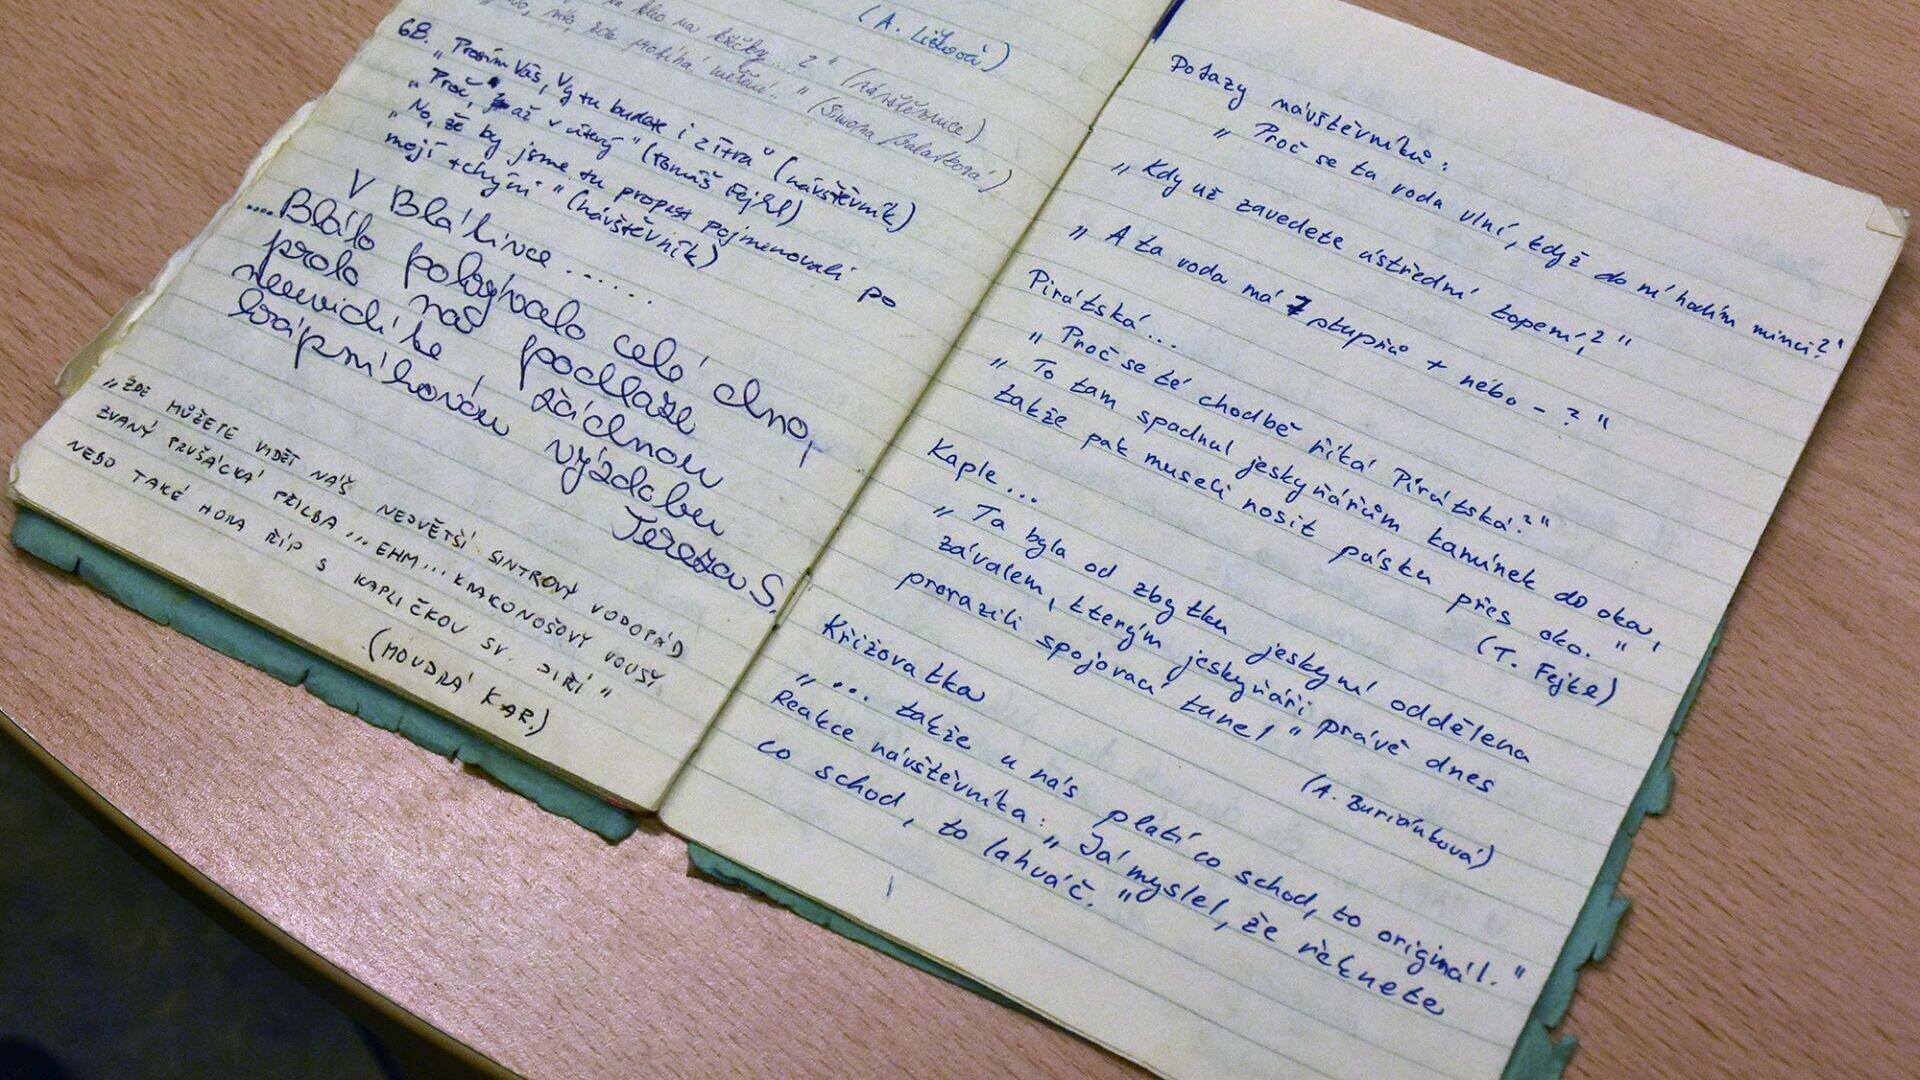 (A. Lišková)
(návštěvnice)
68. „Prosím Vás, Vy tu budete i zítra“ (návštěvník)
„Proč, až v úterý“ (Tomáš Fejkl)
„No, že by jsme tu propast pojmenovali po
mojí tchýni“ (návštěvník)
V Blátivce ......
....Bláto pokrývalo celé dno,
proto na podlaze
neuvidíte žádnou
krápníkovou výzdobu
Tereza S.
„ZDE MŮŽETE VIDĚT NÁŠ NEJVĚTŠÍ SINTROVÝ VODOPÁD
ZVANÝ PRUŠÁCKÁ PŘILBA ... EHM... KRAKONOŠOVY VOUSY
NEBO TAKÉ HORA ŘÍP S KAPLIČKOU SV. JIŘÍ“
(MOUDRÁ KAR.)
Dotazy návštěvníků:
„Proč se ta voda vlní, když do ní hodím minci?“
„Kdy už zavedete ústřední topení?“
„A ta voda má 7 stupňů + nebo - ?“
Pirátská...
„Proč se té chodbě říká Pirátská?“
„To tam spadnul jeskyňářům kamínek do oka,
takže pak museli nosit pásku přes oko.“
(T. Fejkl)
Kaple...
„Ta byla od zbytku jeskyní oddělena
závalem, kterým jeskyňáři právě dnes
prorazili spojovací tunel“
(A. Buriánková)
Křižovatka
„... takže u nás platí co schod, to originál.“
Reakce návštěvníka: „Já myslel, že řeknete
co schod, to lahváč.“